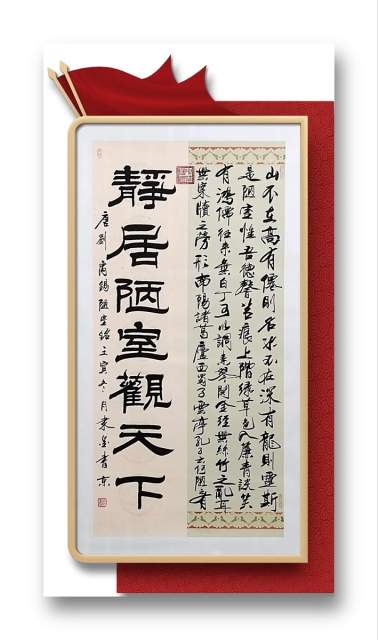 山不在高有僊則名水不在深有龍則靈斯
是陋室惟吾德馨苔痕上階綠草色入簾青談笑
有鴻儒往來無白丁可以調素琴閱金經無絲竹之亂耳
無案牘之勞形南陽諸葛廬西蜀子雲亭孔子云何陋之有
靜居陋室觀天下
唐劉禹錫陋室銘壬寅冬月書京